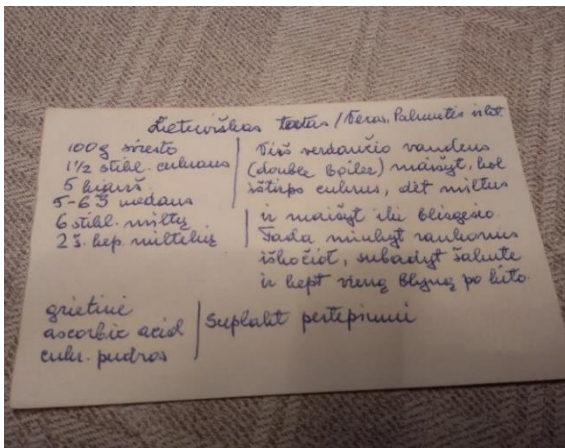 Lietuviškas tortas / Teras. Palmutės
100g sviesto
1½ stikl. cukraus
5 kiauš.
5-6 Š medaus
6 stikl. miltų
2 š. kep. miltelių
Virš verdančio vandens
(double boiler) maišyt, kol
ištirps cukrus, dėt miltus
ir maišyt iki blizgesio.
Tada minkyt rankomis
iškočiot, subadyt šakute
ir kept vieną blyną po kito.
grietinė
ascorbic acid
cukr. pudros
Suplakt pertepimui